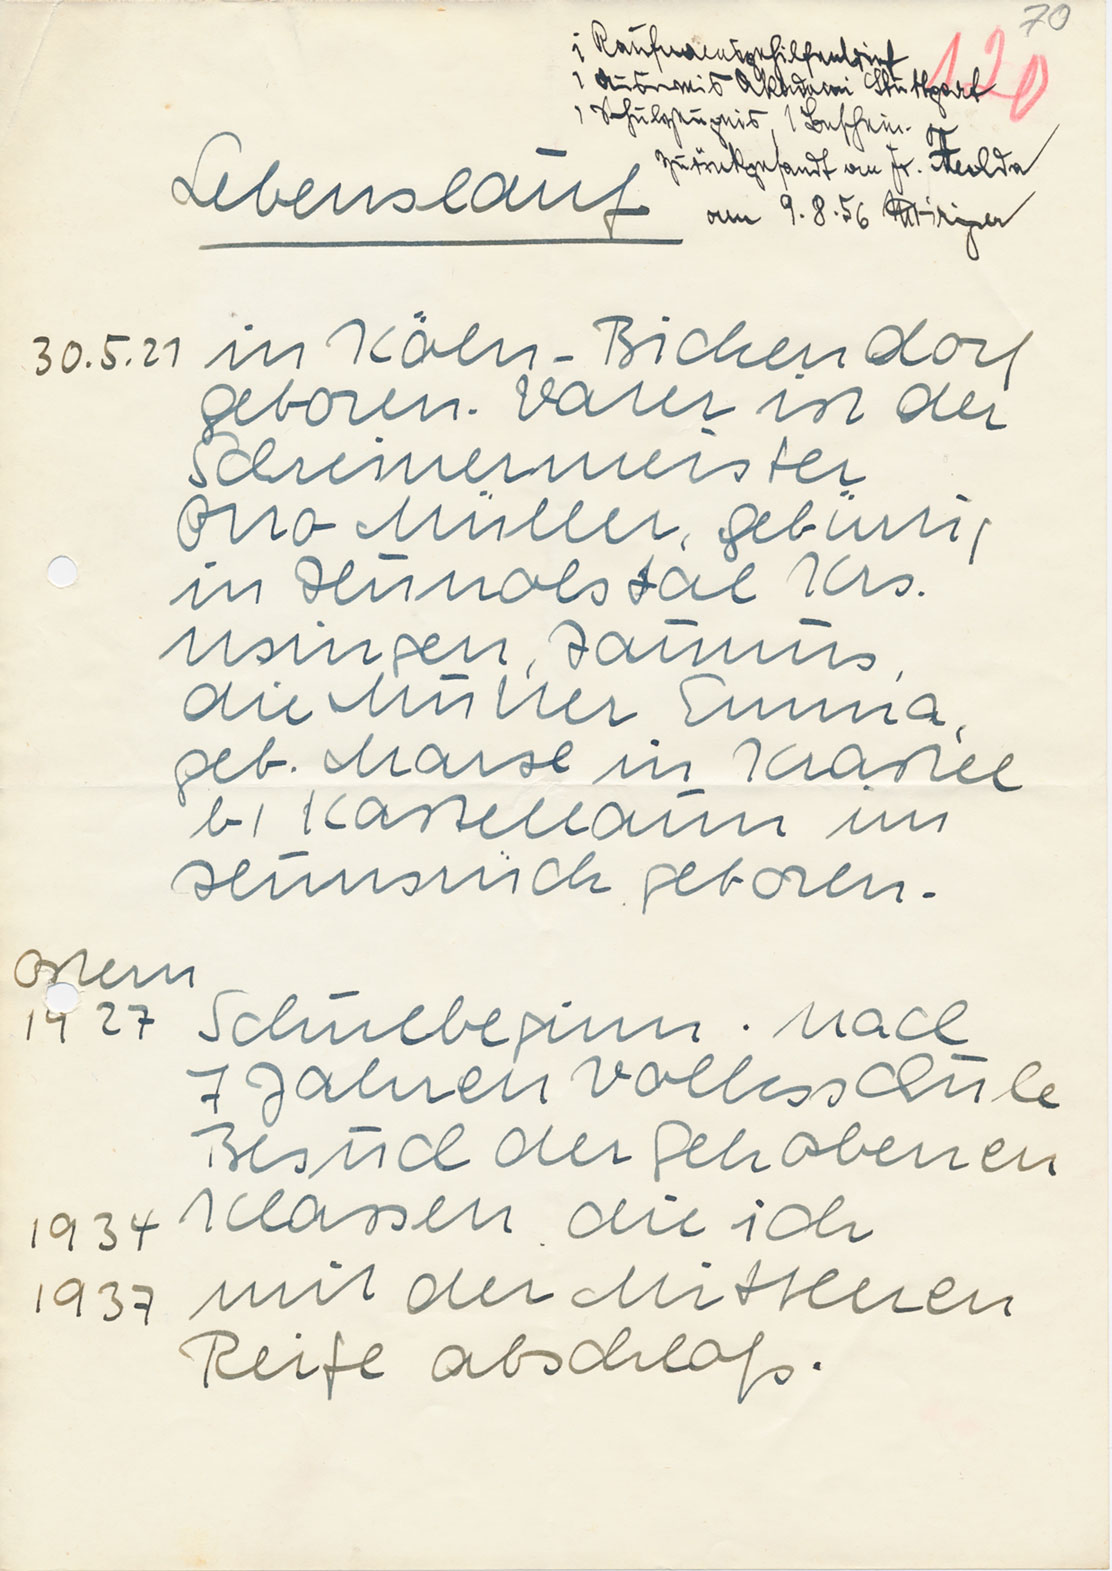 70
120
1 Kaufmannsgehilfenbrief
1 Ausweis Akademie Stuttgart
1 Schulzeugnis, 1 Beschein.
zurückgesandt an Fr.
am 9.8.56
Lebenslauf
30.5.21 in Köln-Bickendorf
geboren. Vater ist der
Schreinermeister
Otto Müller, gebürtig
in Hunolstal Krs.
Usingen, Taunus,
die Mutter Emma,
geb. Marx in Krastel
b/ Kastellaun im
Hunsrück geboren.
Ostern
1927 Schulbeginn. Nach
7 Jahren Volksschule
Besuch der gehobenen
1934 Klassen die ich
1937 mit der Mittleren
Reife abschloß.